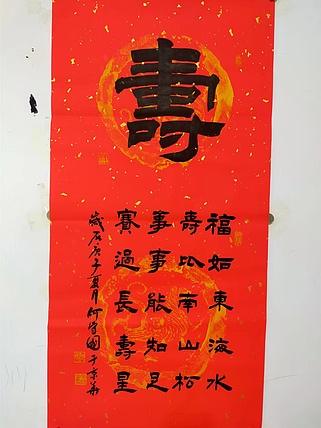 壽
福如東海水
壽比南山松
事事能知足
賽過長壽星
歲在庚子夏月